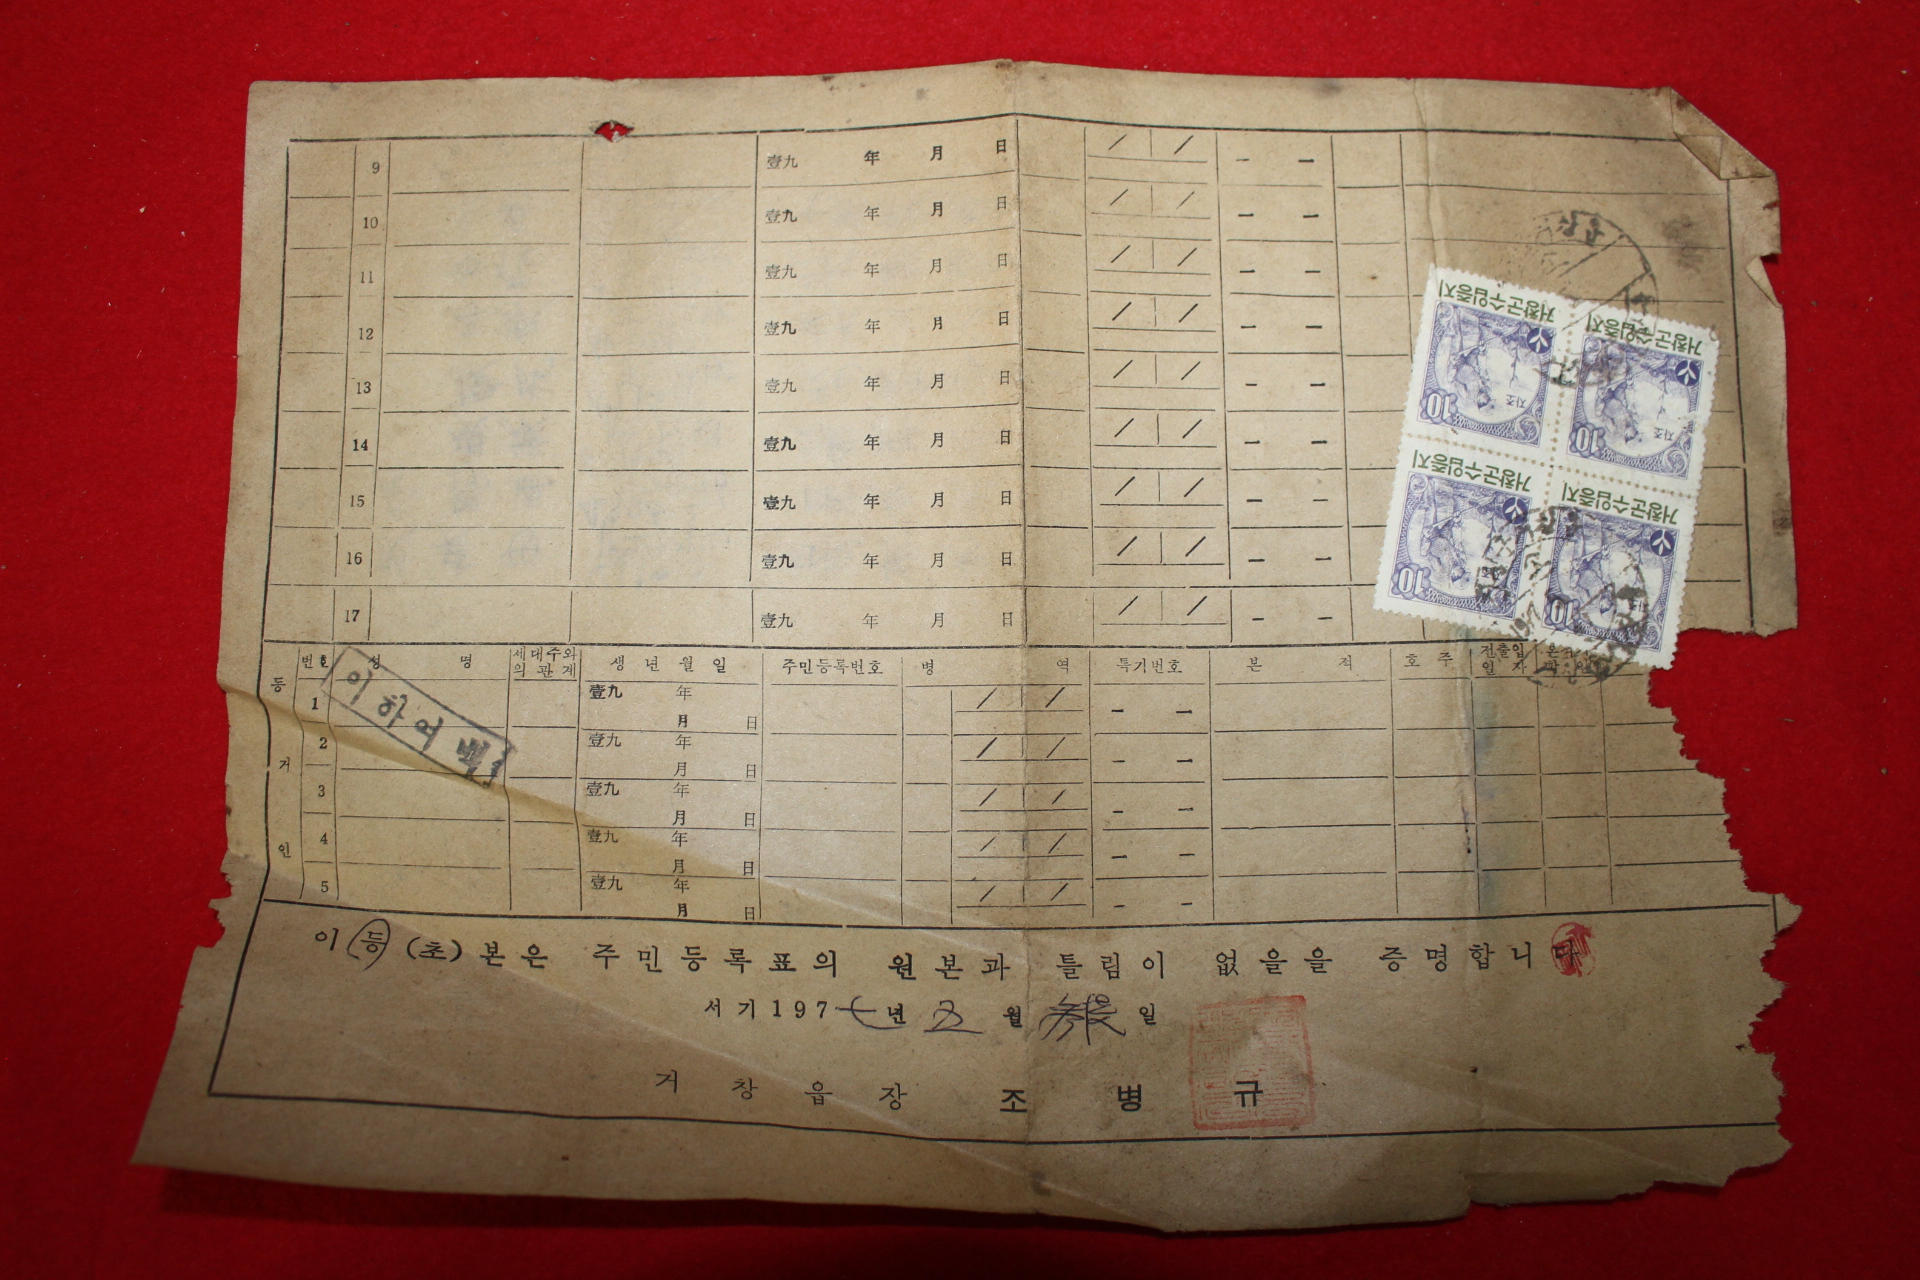 9 壹九 年 月 日 / / - -
10 壹九 年 月 日 / / - -
11 壹九 年 月 日 / / - -
12 壹九 年 月 日 / / - -
13 壹九 年 月 日 / / - -
14 壹九 年 月 日 / / - -
15 壹九 年 月 日 / / - -
16 壹九 年 月 日 / / - -
17 壹九 年 月 日 / / - -
거창군수입증지 거창군수입증지
10 자조 10 자조
거창군수입증지 거창군수입증지
10 10 자조
등거인
번호 성 명 세대주와의 관계 생 년 월 일 주민등록번호 병 역 특기번호 본 적 호 주 전출입일 자
이하여백
1 壹九 年 月 日 / / - -
2 壹九 年 月 日 / / - -
3 壹九 年 月 日 / / - -
4 壹九 年 月 日 / / - -
5 壹九 年 月 日 / / - -
이 등 (초) 본은 주민등록표의 원본과 틀림이 없을을 증명합니다
서기 197七년 五 월 일
거 창 읍 장 조 병 규